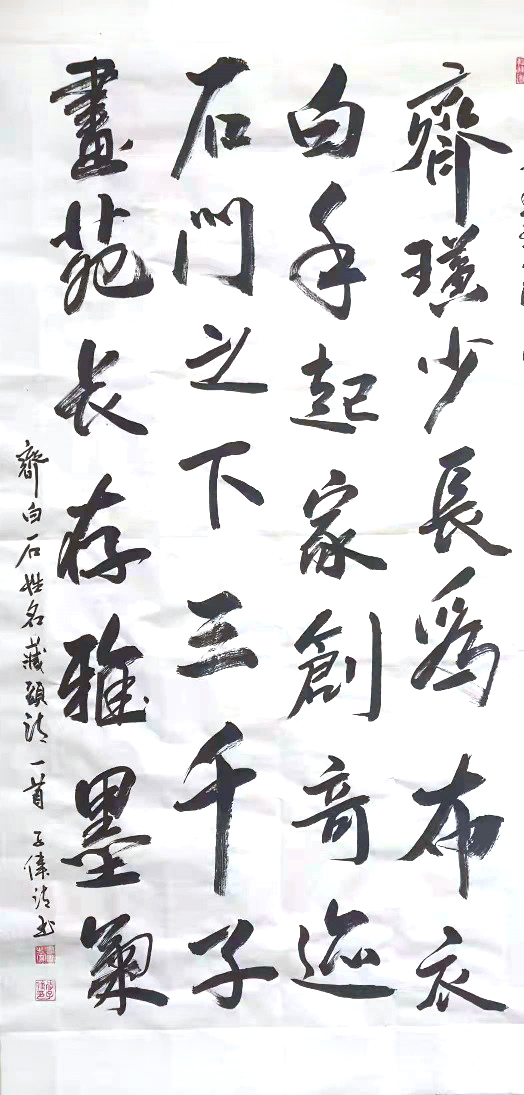 齊璜少長爲布衣
白手起家創竒迹
石門之下三千子
畫苑长存雅墨菊
齊白石姓名藏頭詩一首 子 詩书